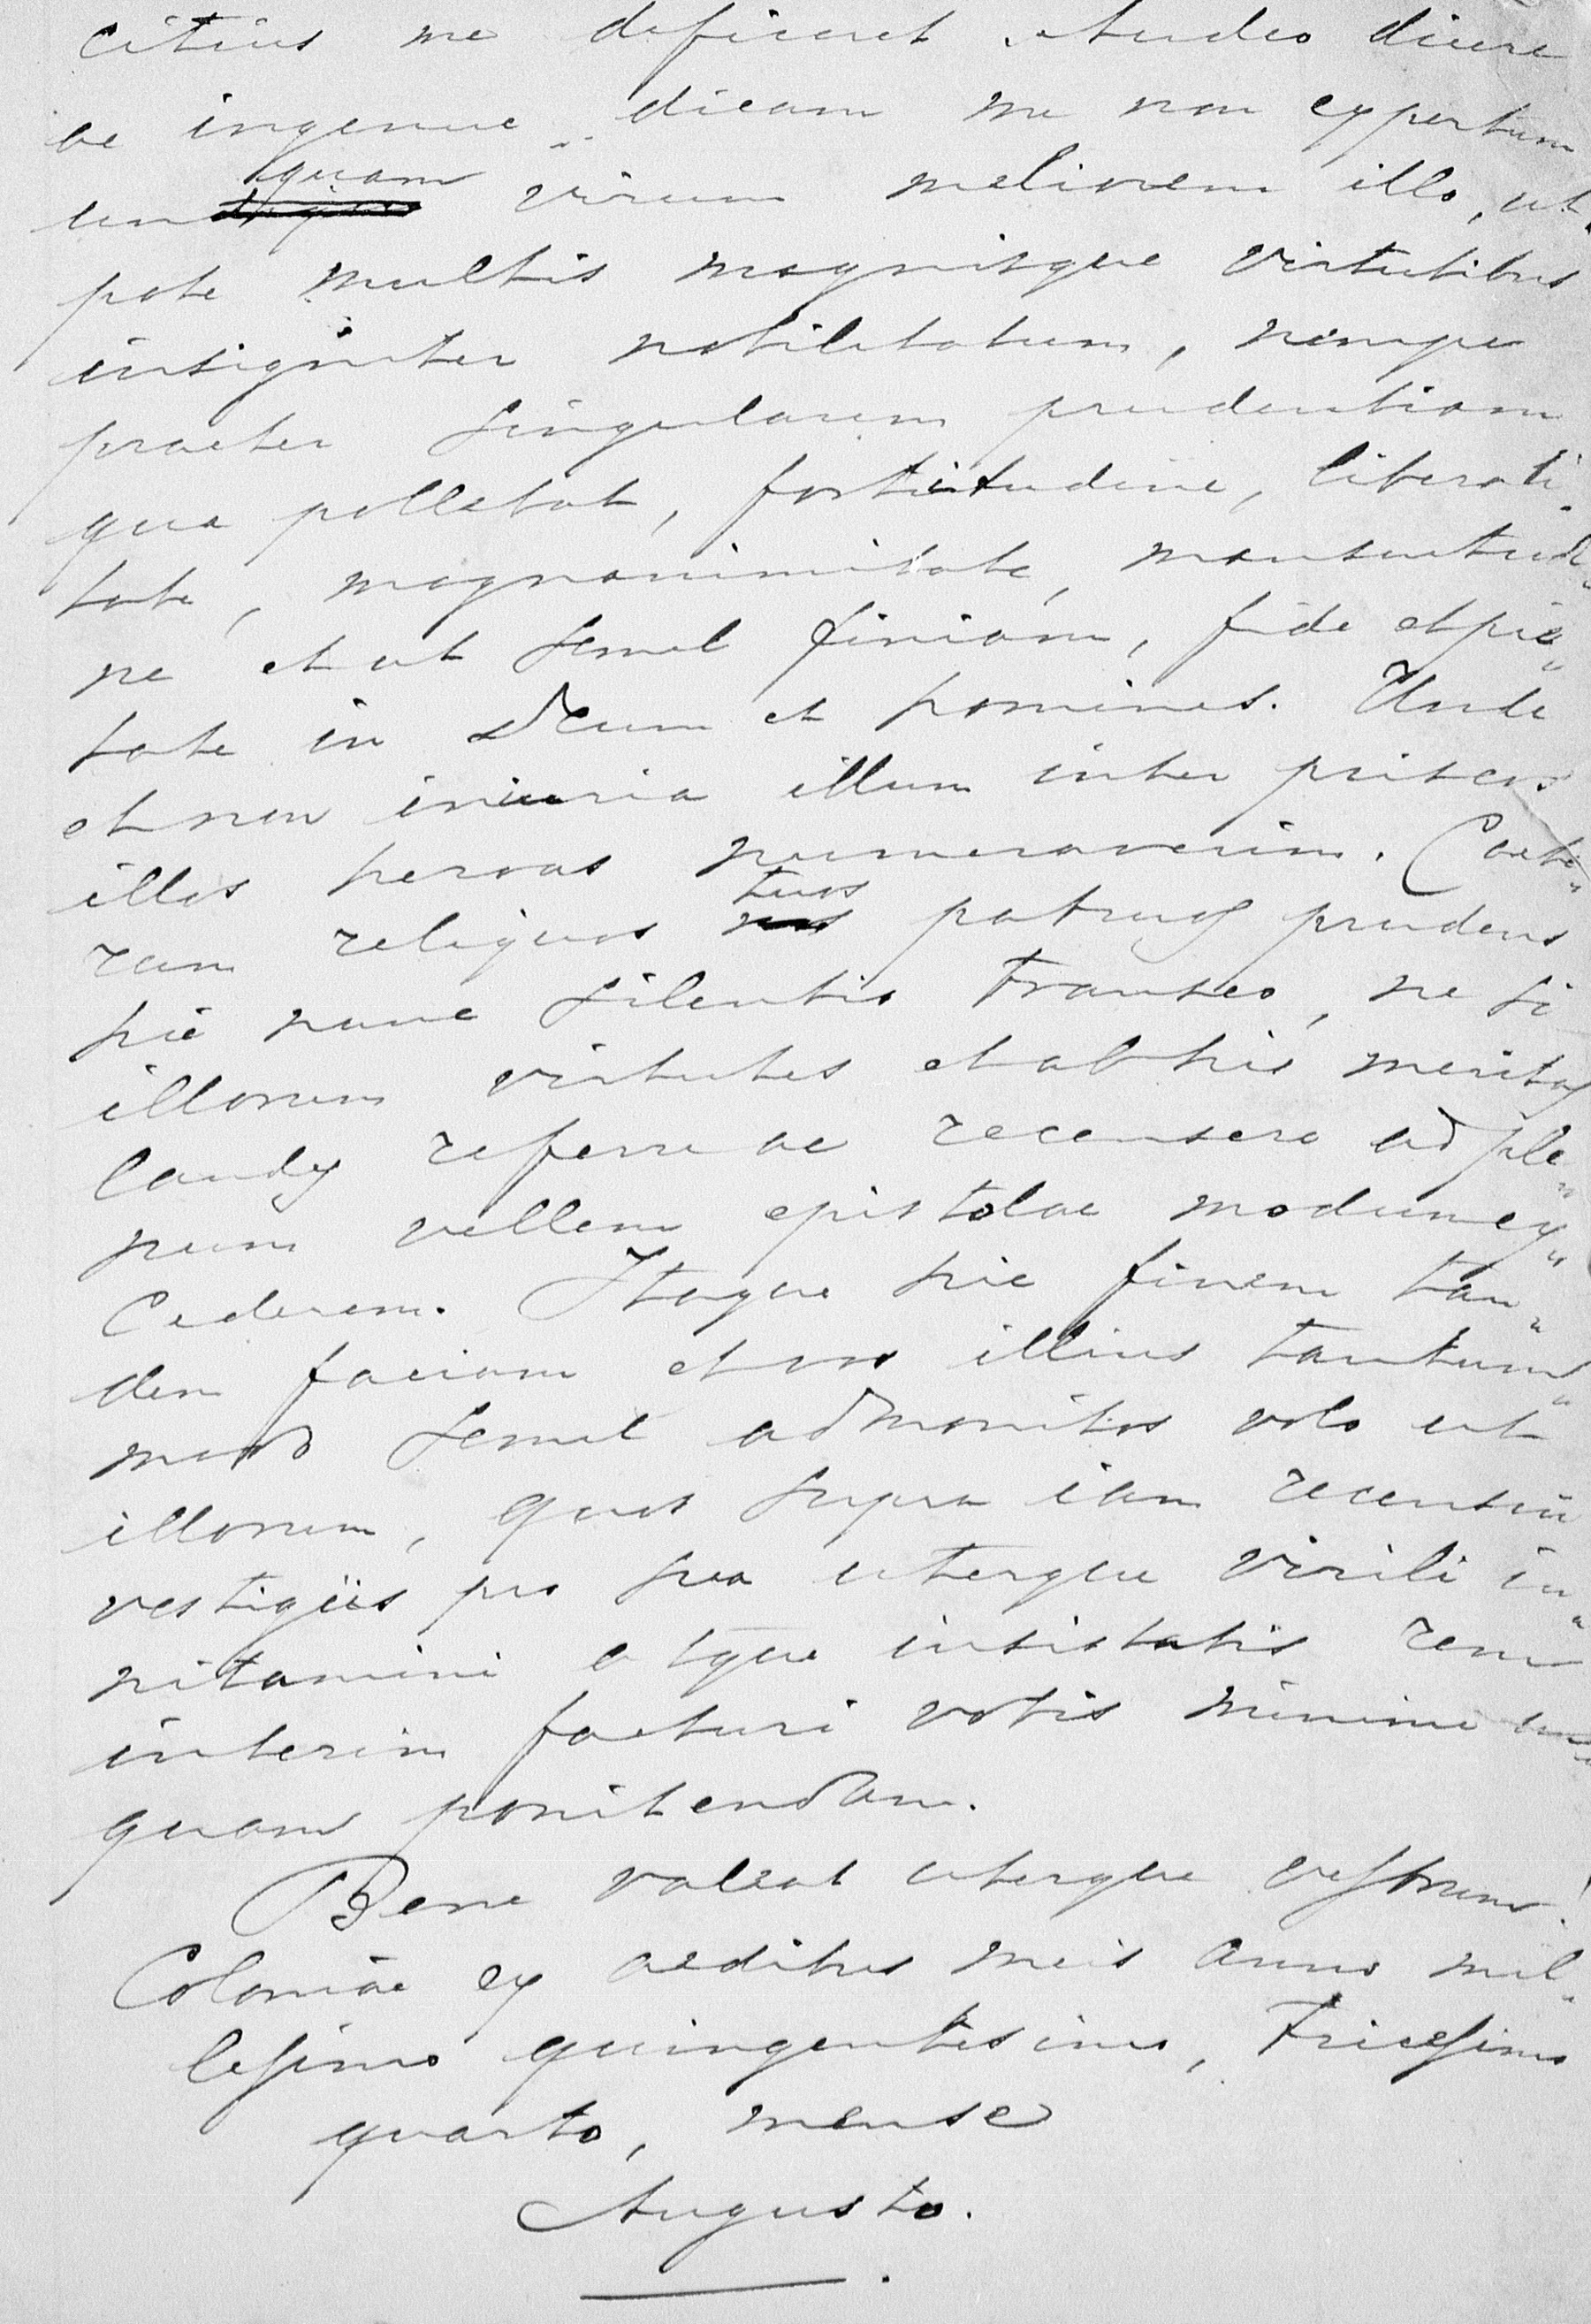 citius me deficeret. Audeo dicere
ac ingenue dicam me non expertum
unquam virum meliorem illo, ut-
pote multis magnisque virtutibus
insigniter nobilitatum, nempe
praeter singularem prudentiam
qua pollebat, fortitudine, liberali-
tate, magnanimitate, mansuetudi-
ne et ut semel finiam, fide et pie-
tate in Deum et homines. Unde
et non iniuria illum inter priscos
illos heroas numeraverim. Caete-
rum reliquos tuos patruos prudens
hic nunc silentio transeo, ne si
illorum virtutes et ab his meritas
laudes referre ac recensere ad ple-
num vellem epistolae modum ex-
cederem. Itaque hic finem tan-
dem faciam et vos illius tantum-
modo semel admonitos volo ut
illorum, quos supra iam recensui
vestigiis pro sua uterque virili in-
nitamini atque insistatis rem
interim facturi vobis minime un-
quam ponitendam.
Bene valeat uterque vestrum!
Coloniae ex aedibus meis anno mil-
lesimo quingentesimo, Tricesimo
quarto, mense
Augusto.